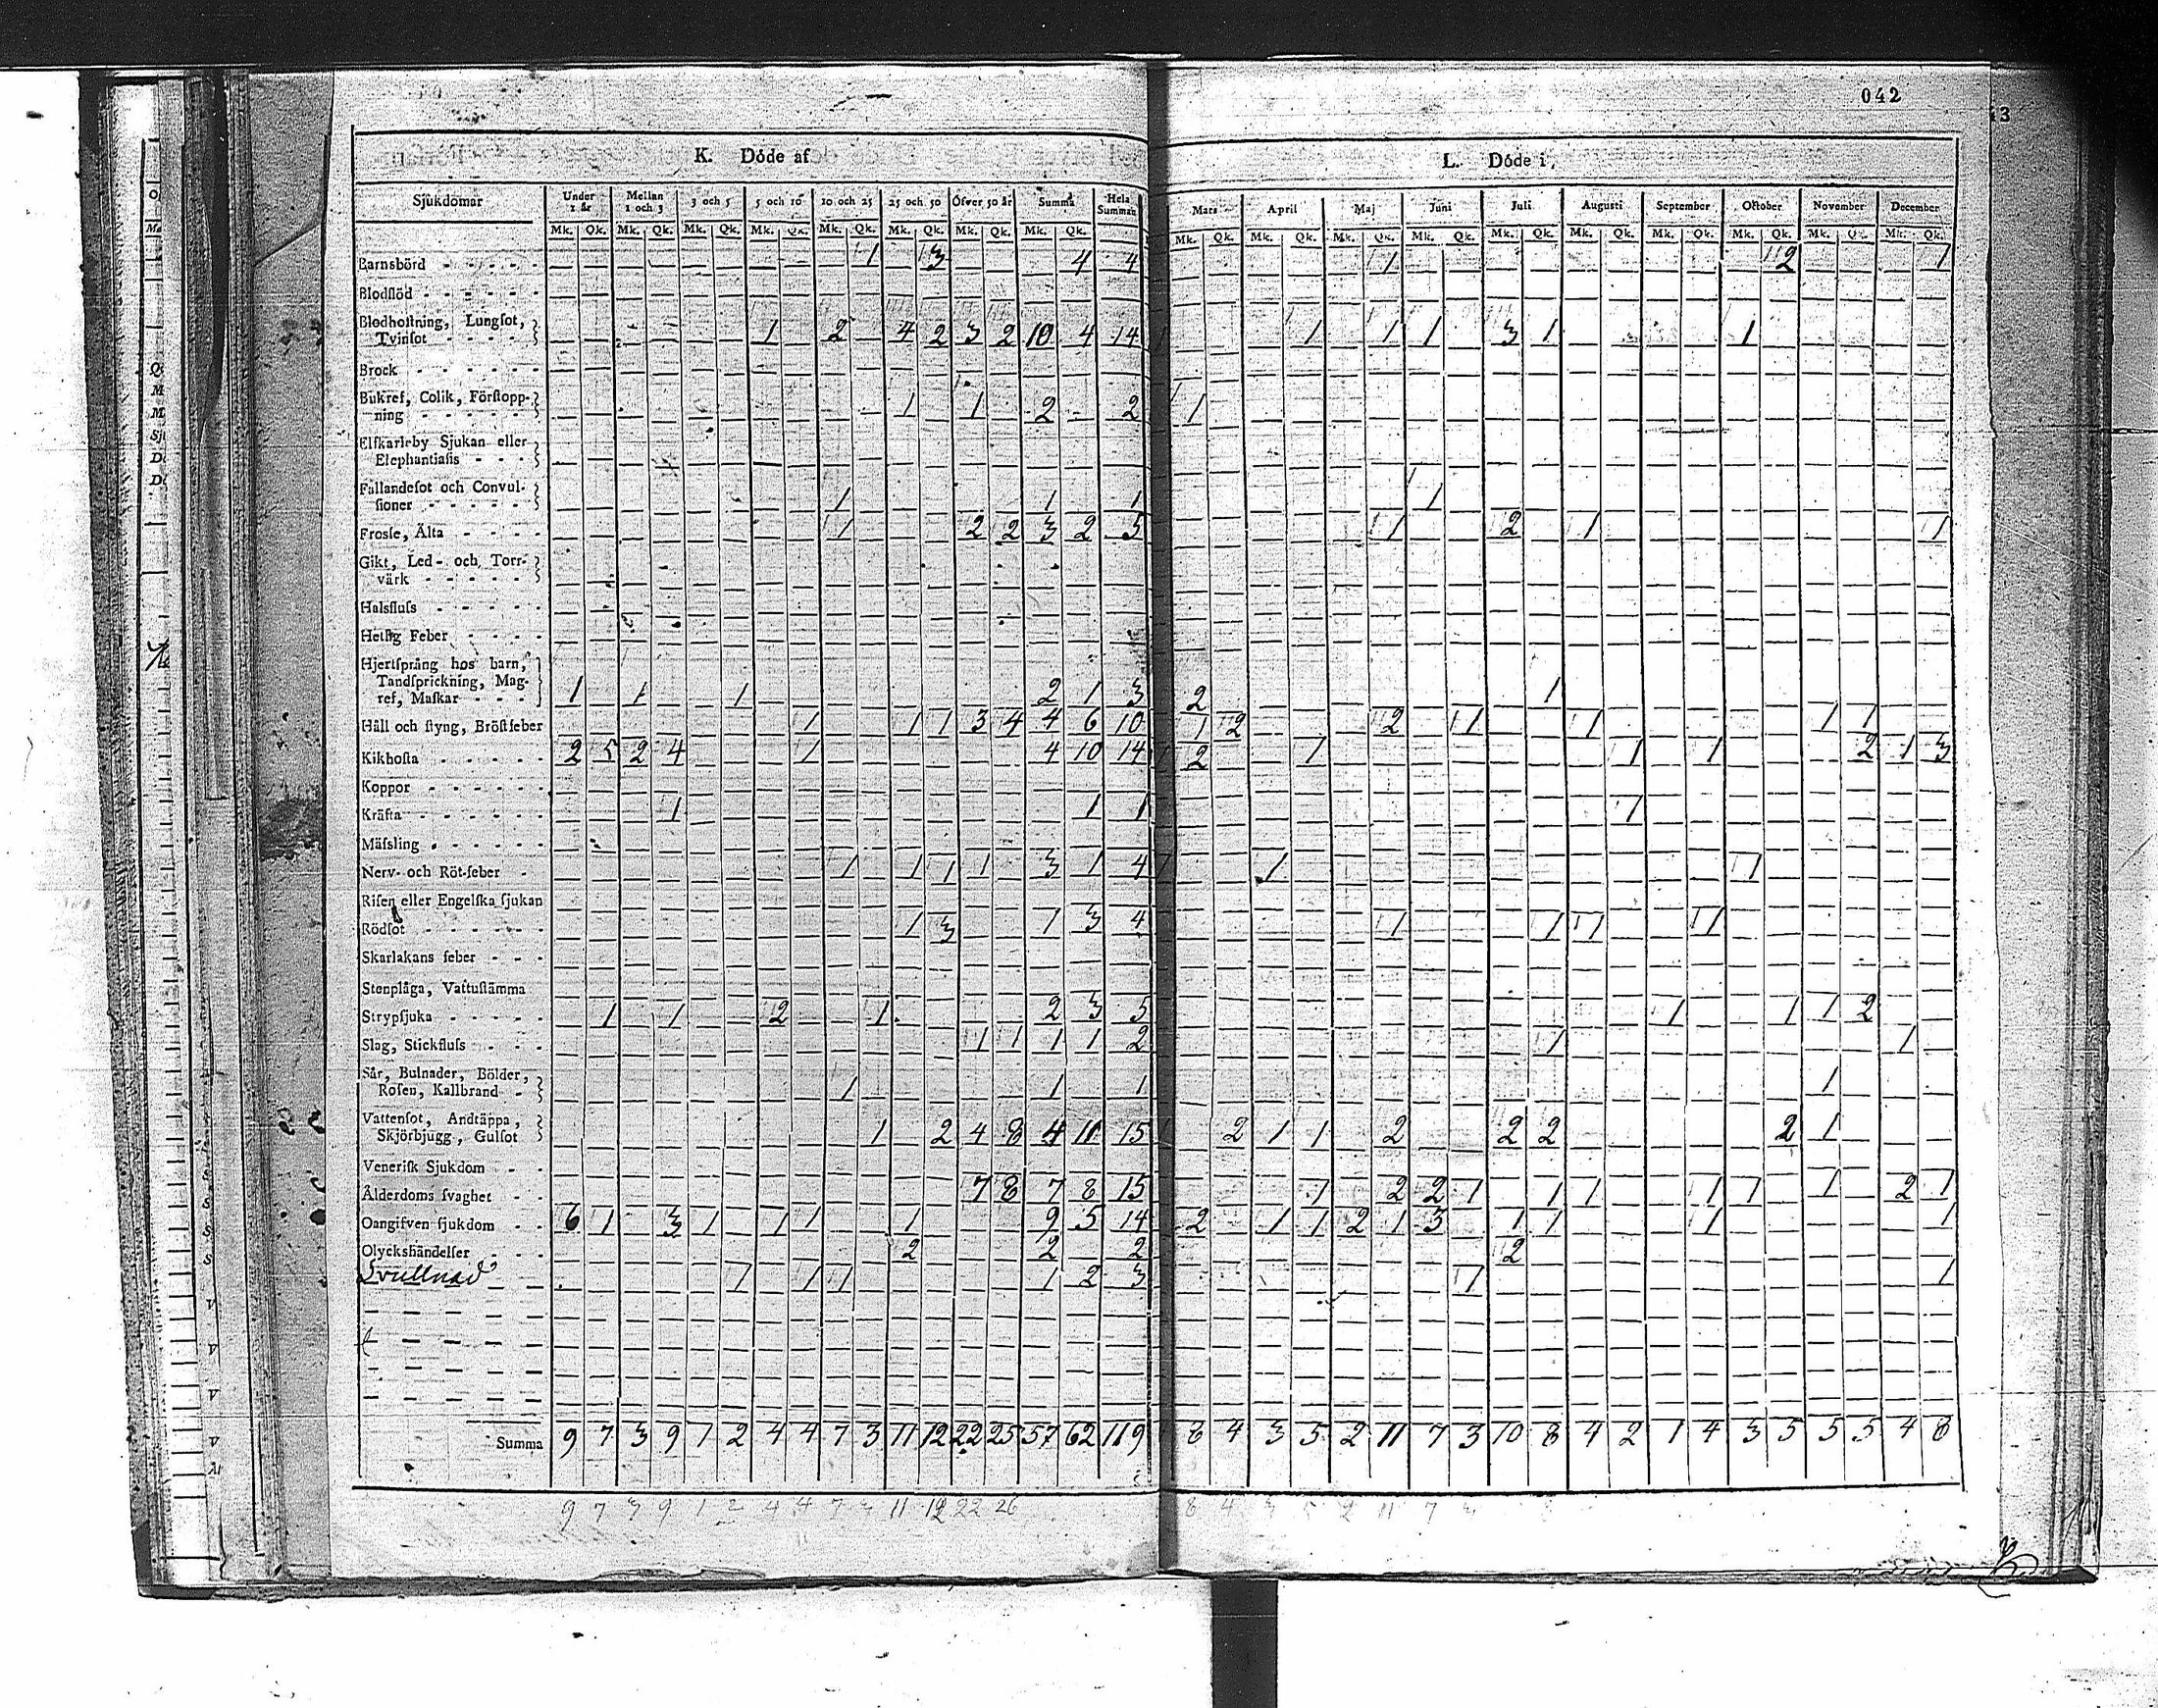 042
43
K. Döde af
Sjukdomar Under 1 år Mellan 1 och 3 3 och 5 5 och 10 10 och 25 25 och 50 Öfver 50 år Summa Hela Summan
Mk. Qk. Mk. Qk. Mk. Qk. Mk. Qk. Mk. Qk. Mk. Qk. Mk. Qk. Mk. Qk.
Barnsbörd - - - - - 1 3 4 4
Blodflöd - - - - - -
Blodhostning, Lungsot,
Tvinsot - - - - 1 2 4 2 3 2 10 4 14
Brock - - - - - -
Bukref, Colik, Förstopp-
ning - - - - - 1 1 2 2
Elfkarleby Sjukan eller
Elephantiasis - - -
Fallandesot och Convul-
sioner - - - - - 1 1 1
Frosse, Älta - - - - 1 2 2 3 2 5
Gikt, Led- och Torr-
värk - - - - -
Halsfluss - - - - -
Hetsig Feber - - - -
Hjertsprång hos barn,
Tandsprickning, Mag-
ref, Maskar - - - 1 1 1 2 1 3
Håll och styng, Bröstfeber 1 1 1 3 4 4 6 10
Kikhosta - - - - - 2 5 2 4 1 4 10 14
Koppor - - - - - -
Kräfta - - - - - - 1 1 1
Mässling - - - - - -
Nerv- och Röt-feber - 1 1 1 1 3 1 4
Risen eller Engelska sjukan
Rödsot - - - - - - 1 3 1 3 4
Skarlakans feber - - -
Stenplåga, Vattustämma
Strypsjuka - - - - - 1 1 2 1 2 3 5
Slag, Stickfluss - - - 1 1 1 1 2
Sår, Bulnader, Bölder,
Rosen, Kallbrand - 1 1 1
Vattensot, Andtäppa,
Skjörbjugg, Gulsot 1 2 4 8 4 11 15
Venerisk Sjukdom - -
Ålderdoms svaghet - - 7 8 7 8 15
Oangifven sjukdom - - 6 1 3 1 1 1 1 9 5 14
Olyckshändelser - - - 2 2 2
Svullnad 1 1 1 1 2 3
Summa 9 7 3 9 1 2 4 4 7 3 11 12 22 25 57 62 119
9 7 3 9 1 2 4 4 7 3 11 12 22 26
L. Döde i
Mars April Maj Juni Juli Augusti September Oktober November December
Mk. Qk. Mk. Qk. Mk. Qk. Mk. Qk. Mk. Qk. Mk. Qk. Mk. Qk. Mk. Qk. Mk. Qk. Mk. Qk.
1 2 1
1 1 1 3 1 1
1
1
1 2 1 1
2 1
1 2 2 1 1 1 1
2 1 1 1 2 1 3
1
1 1
1 1 1 1
1 1 1 2
1 1
1
2 1 1 2 2 2 2 1
1 2 2 1 1 1 1 1 1 2 1
2 1 1 2 1 3 1 1 1 1
2
1 1
8 4 3 5 2 11 7 3 10 8 4 2 1 4 3 5 5 5 4 8
8 4 3 5 2 11 7 3 8